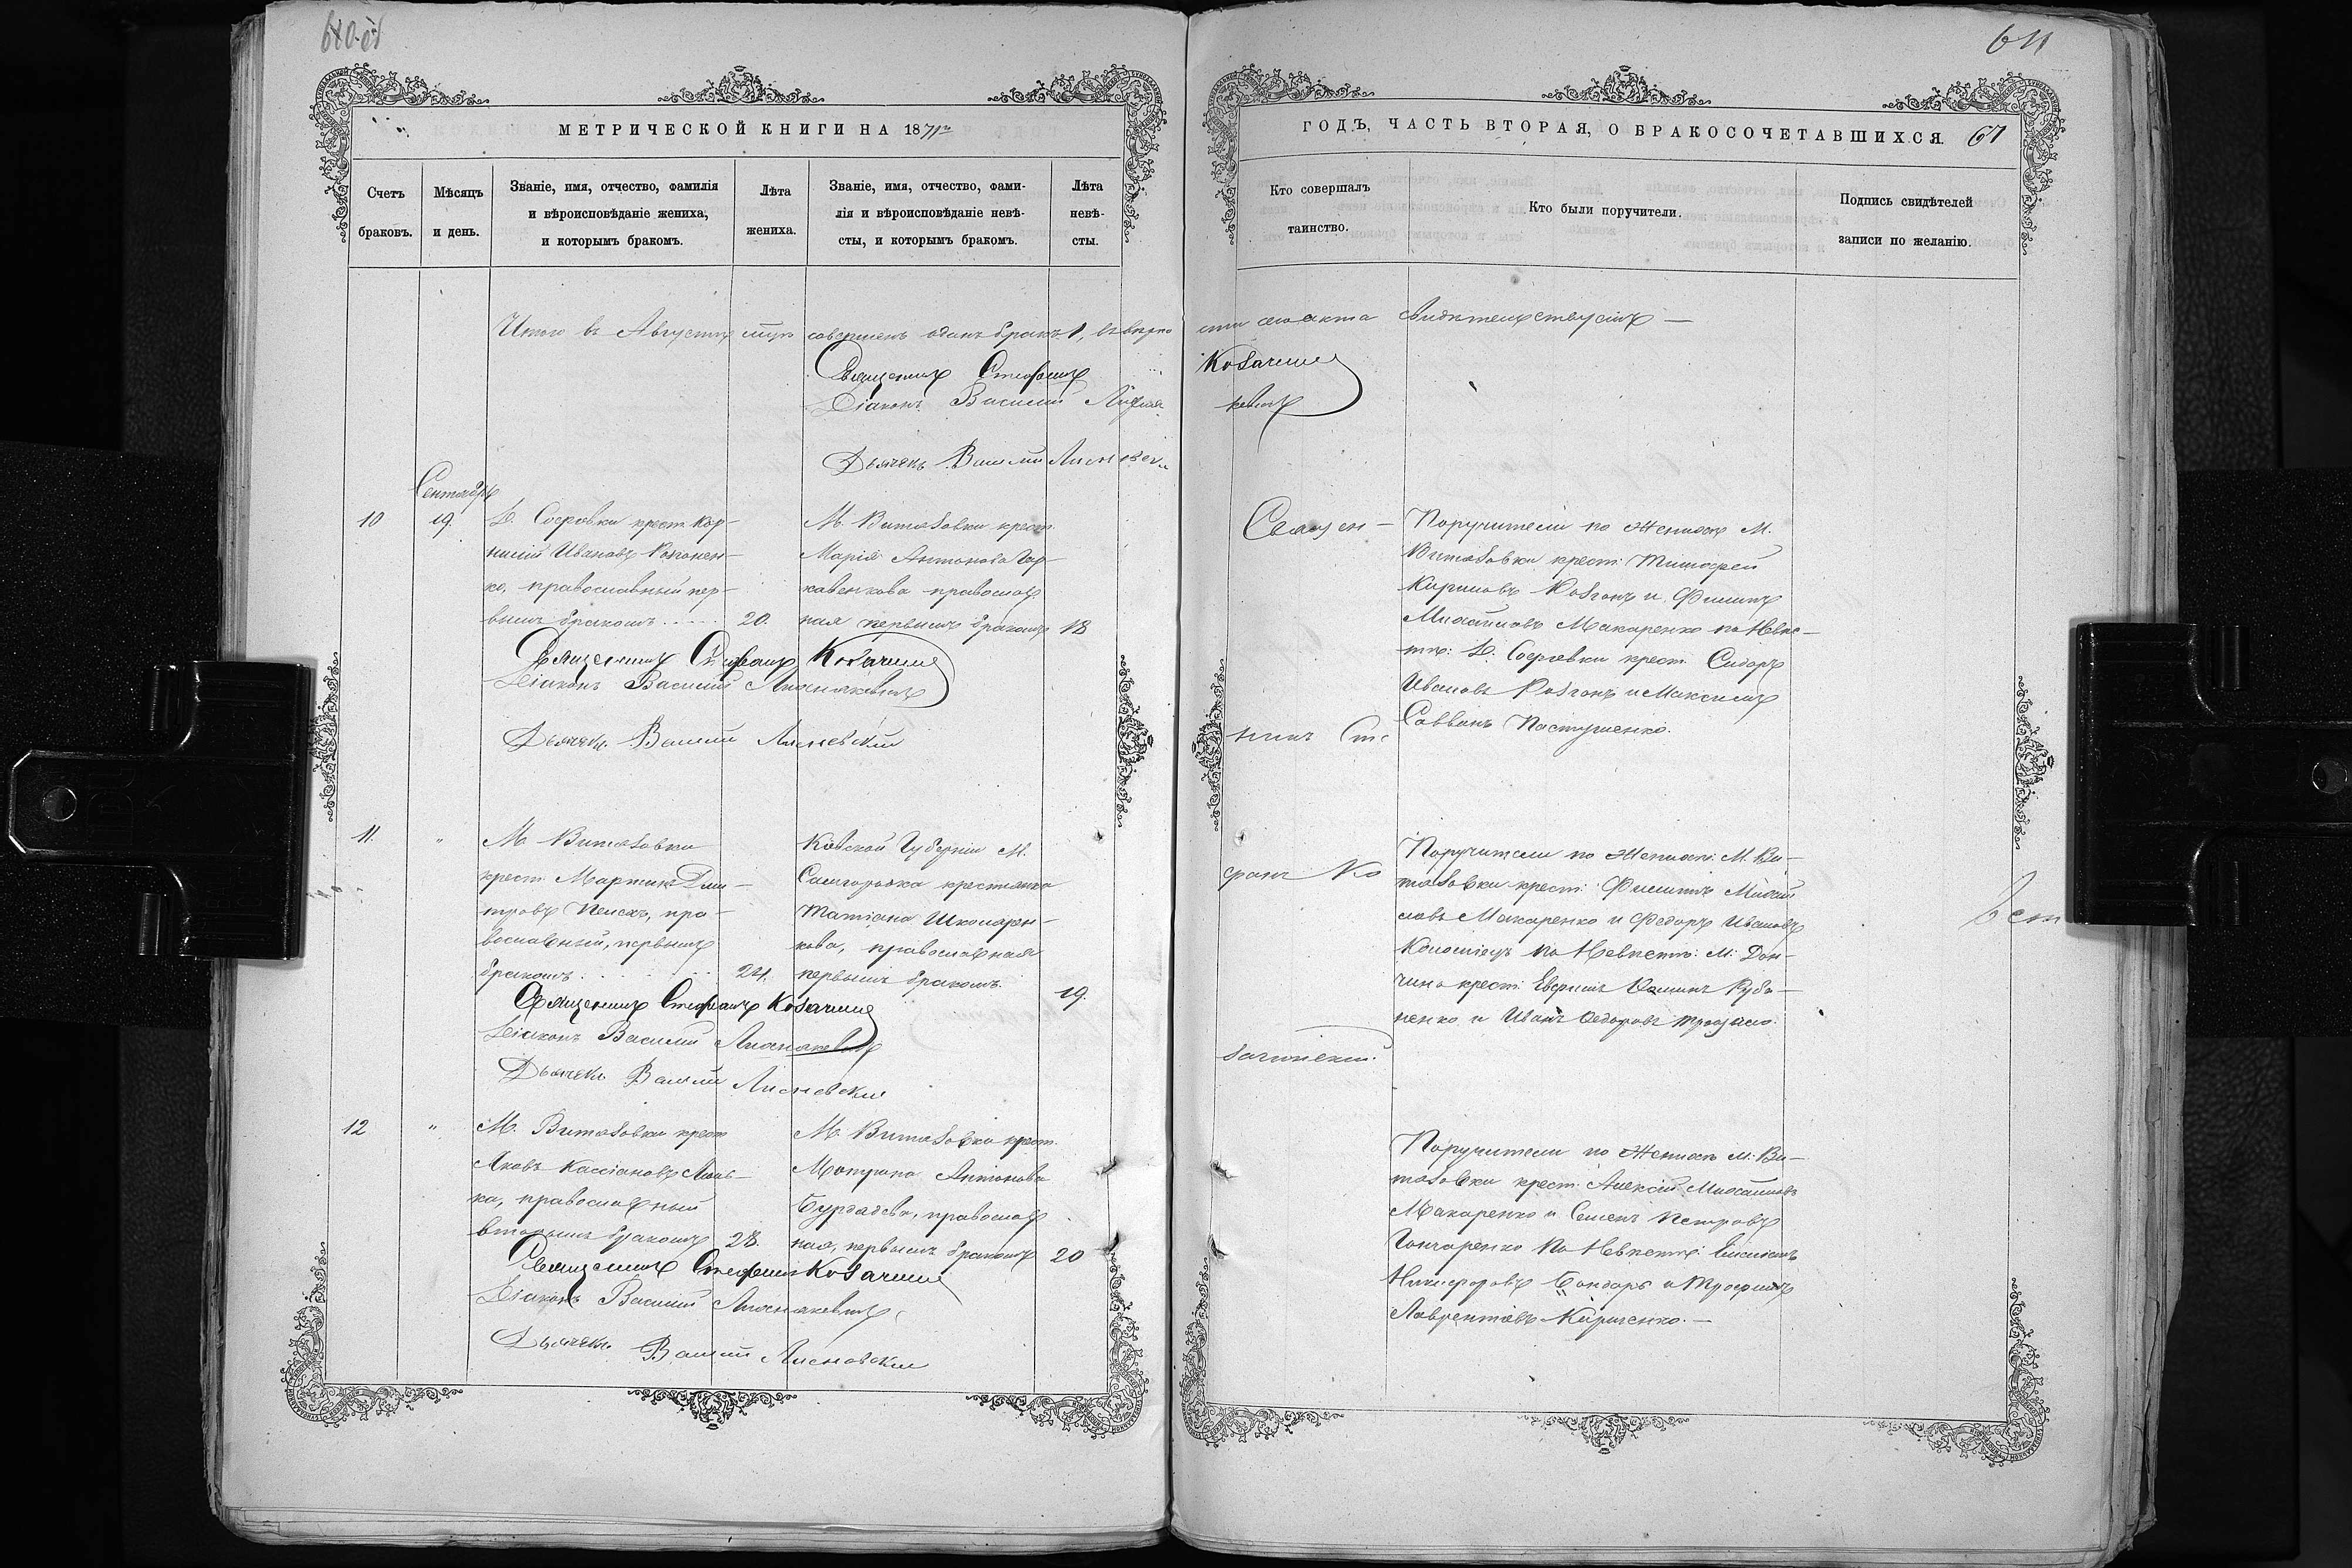 МЕТРИЧЕСКОЙ КНИГИ НА 1871й
Счетъ браковъ.
Мѣсяцъ и день.
Званіе, имя, отчество, фамилія
и вѣроисповѣданіе жениха,
и которымъ бракомъ.
Лѣта жениха.
Званіе, имя, отчество, фами-
лія и вѣроисповѣданіе невѣ-
сты, и которымъ бракомъ.
Лѣта невѣ-
сты.
Итого въ Августѣ мцѣ совершенъ одинъ бракъ 1, въ вѣрно
Священникъ Стефанъ
Діаконъ Василій
Дьячекъ Василій Лисневск
Сентябрь
10
19.
Д. Софіевки крест. Кор-
нилій Ивановъ Кононен-
ко, православный пер-
вымъ бракомъ
20.
М. Витазовки крест.
Марія Антонова Гор-
кавенкова православ
ная первымъ бракомъ
18
Священникъ Стефанъ Козачинс
Діаконъ Василій Лиснякевичъ
Дьячекъ Василій Лисневскій
11.
"
М Витазовки
крест. Мартинъ Дми-
тровъ Пелехъ, пра-
вославный, первымъ
бракомъ
24.
Кіевской Губерніи М.
Самгородка крестянка
Татіана Школярен-
кова, православная
первымъ бракомъ.
19.
Священникъ Стефанъ Козачинс
Діаконъ Василій Лиснякевичъ
Дьячекъ Василій Лисневскій
12
"
М. Витазовки крест
Яковъ Кассіановъ
ка, православный
вторымъ бракомъ
28.
М. Витазовки крест.
Мотрона Антонова
православ
ная, первымъ бракомъ
20
Священникъ Стефанъ Козачинс
Діаконъ Василій Лиснякевичъ
Дьячекъ Василій Лисневскій
ГОДЪ, ЧАСТЬ ВТОРАЯ, О БРАКОСОЧЕТАВШИХСЯ. 67
Кто совершалъ
таинство.
Кто были поручители.
Подпись свидѣтелей
записи по желанію.
сти сего акта свидѣтельствуемъ —
Козачинс
кевичъ
Священ-
никъ Сте
фанъ Ко
зачинскій.
Поручители по Женихѣ М.
Витазовки крест. Тимофей
Кириловъ Козгонъ и Филипъ
Михайловъ Макаренко по Невѣс-
тѣ: Д. Софіевки крест. Сидоръ
Ивановъ Козгонъ и Максимъ
Саввинъ Пастушенко.
Поручители по Женихѣ: М. Ви-
тазовки крест: Филипъ Михай
ловъ Макаренко и Федоръ Ивановъ
Коломіецъ по Невѣстѣ: М. Дон-
чина крест. Евфимъ Руба-
ненко и Иванъ Федоровъ
Поручители по Женихѣ М. Ви-
тазовки крест: Алексій Михайловъ
Макаренко и Семенъ Петровъ
Гончаренко по Невѣстѣ:
Никифоровъ Бондарь и Трофимъ
Лаврентіевъ Кириченко. —